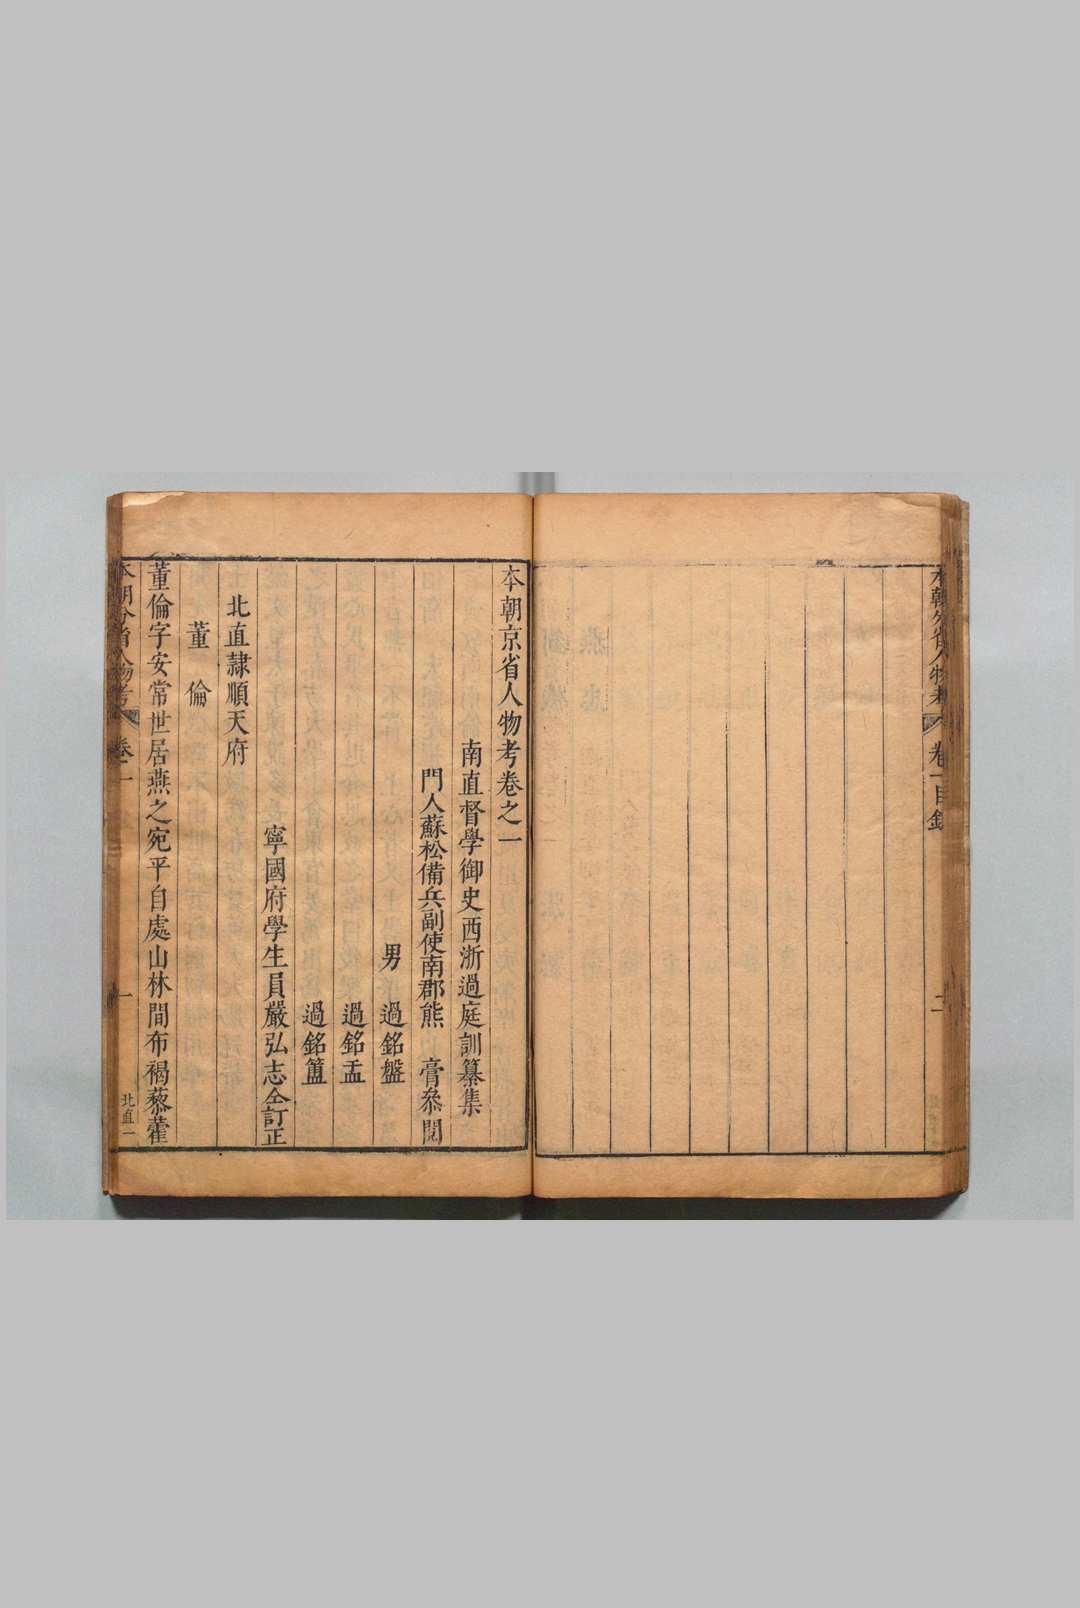 本朝分省人物考 卷一目錄 二
本朝京省人物考卷之一
南直督學御史西浙過庭訓纂集
門人蘇松備兵副使南郡熊 膏叅閱
男 過銘盤
過銘盂
過銘簠
寧國府學生員嚴弘志仝訂正
北直隸順天府
董 倫
董倫字安常世居燕之宛平自處山林間布褐藜藿
本朝分省人物考 卷一 一 北直一